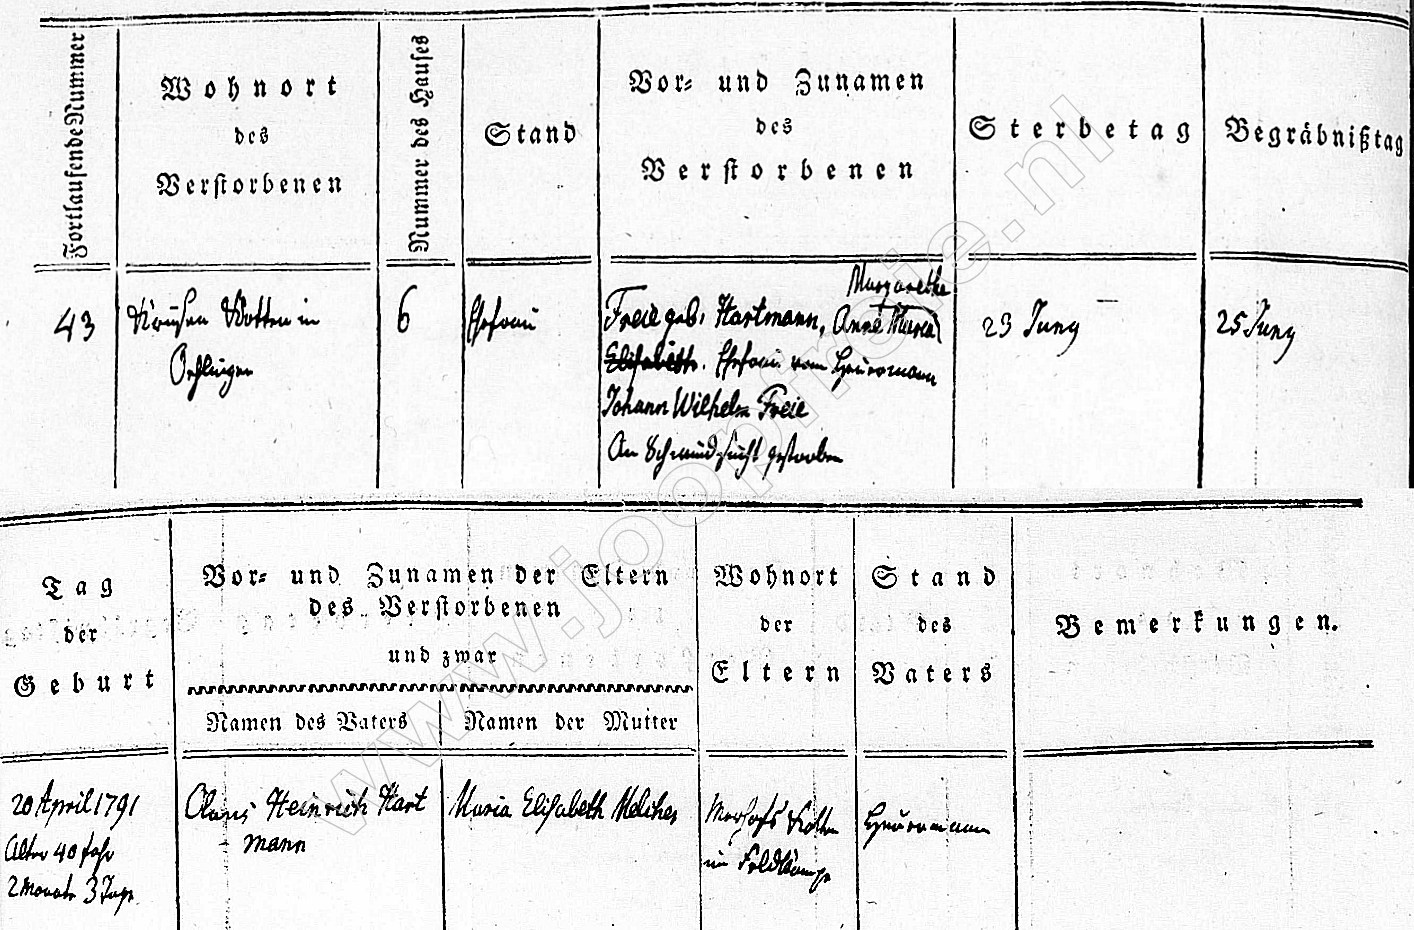 Fortlaufende Nummer
Wohnort
des
Verstorbenen
Nummer des Hauses
Stand
Vor- und Zunamen
des
Verstorbenen
Sterbetag
Begräbnißtag
43
Kotten in
6
Ehefrau
Margarethe
Freie geb. Hartmann, Anne Maria
Elisabeth. Ehefrau vom Heuermann
Johann Wilhelm Freie
An Schwindsucht gestorben
23 Juny
25 Juny
Tag
der
Geburt
Vor- und Zunamen der Eltern
des Verstorbenen
und zwar
Namen des Vaters
Namen der Mutter
Wohnort
der
Eltern
Stand
des
Vaters
Bemerkungen.
20 April 1791
Alter 40 Jahr
2 Monate 3 Tage
Heinrich Hart
mann
Maria Elisabeth Melcher
Kotten
im
Heuermann
www.joopfreie.nl